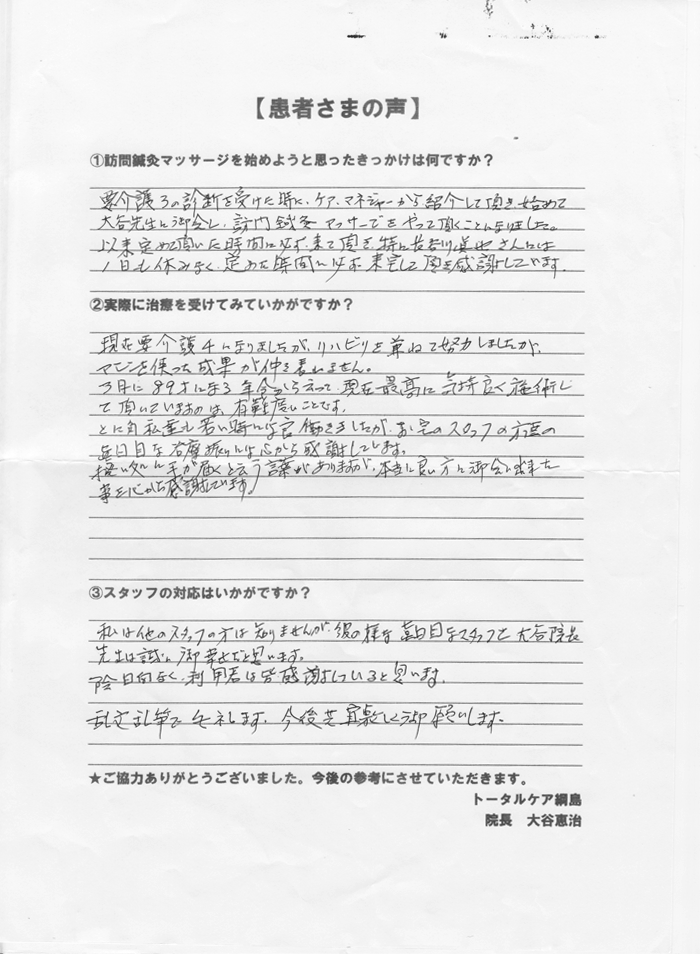 【患者さまの声】
①訪問鍼灸マッサージを始めようと思ったきっかけは何ですか？
要介護3の診断を受けた時に、ケアマネジャーから紹介して頂き、始めて
大谷先生に御会し、訪門鍼灸マッサージをやって頂くことになりました。
以来定めて頂いた時間に必ず来て頂き、特に長谷川さんには
1日も休みなく、定めた時間に必ず来宅して頂き感謝しています。
②実際に治療を受けてみていかがですか？
現在要介護4になりましたが、リハビリを兼ねて努力しましたが、
マシンを使った成果が仲々表れません。
3月に89才になる年令から云って、現在最高に気持良く施術し
て頂いていますのは、有難度いことです。
とに角私達も若い時には皆働きましたが、お宅のスタッフの方々の
真面目な治療振りには心から感謝しています。
痒い処に手が届くと云う言葉がありますが、本当に良い方に御会い出来た
事を心から感謝しています。
③スタッフの対応はいかがですか？
私は他のスタッフの方は知りませんが、彼の様な真面目なスタッフで大谷院長
先生は誠に御幸せだと思います。
陰日向なく、利用者は皆感謝していると思います。
乱文乱筆で失礼します。今後共宜敷しく御願いします。
★ご協力ありがとうございました。今後の参考にさせていただきます。
トータルケア綱島
院長　大谷恵治